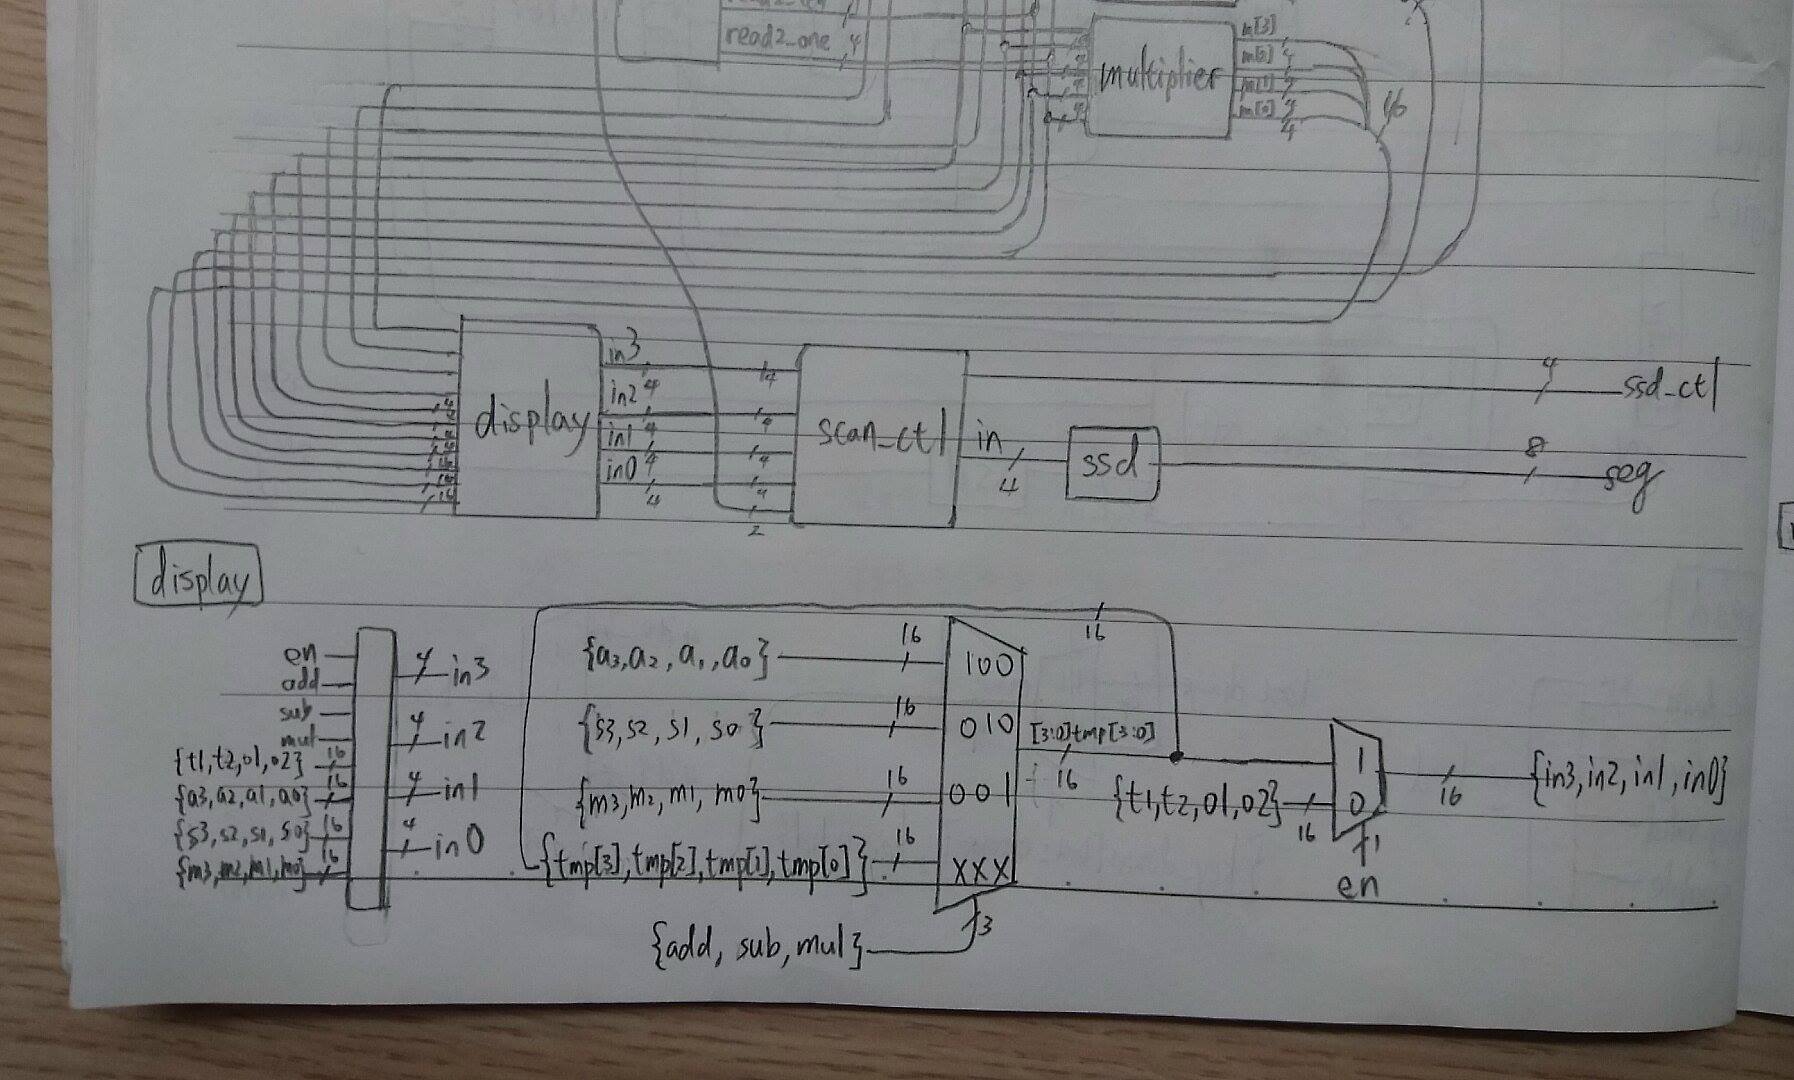 read2_one 4
m[3]
multiplier
m[1]
m[0]
4
16
in3
4
in2 4
in1 4
in0 4
4
display
4
4
4
4
2
scan_ctl
in
4
ssd
4
ssd_ctl
8
seg
display
en
add
sub
mul
{t1,t2,01,02} 16
{a3,a2,a1,a0} 16
{s3,s2,s1,s0} 16
{m3,m2,m1,m0} 16
4 in3
4 in2
4 in1
4 in0
16
{a3,a2,a1,a0} 16 100
{s3,s2,s1,s0} 16 010
{m3,m2,m1,m0} 16 001
{tmp[3],tmp[2],tmp[1],tmp[0]} 16 XXX
{add, sub, mul} 3
[3:0]tmp[3:0]
16
{t1,t2,01,02} 16
1
0
1
en
16
{in3,in2,in1,in0}